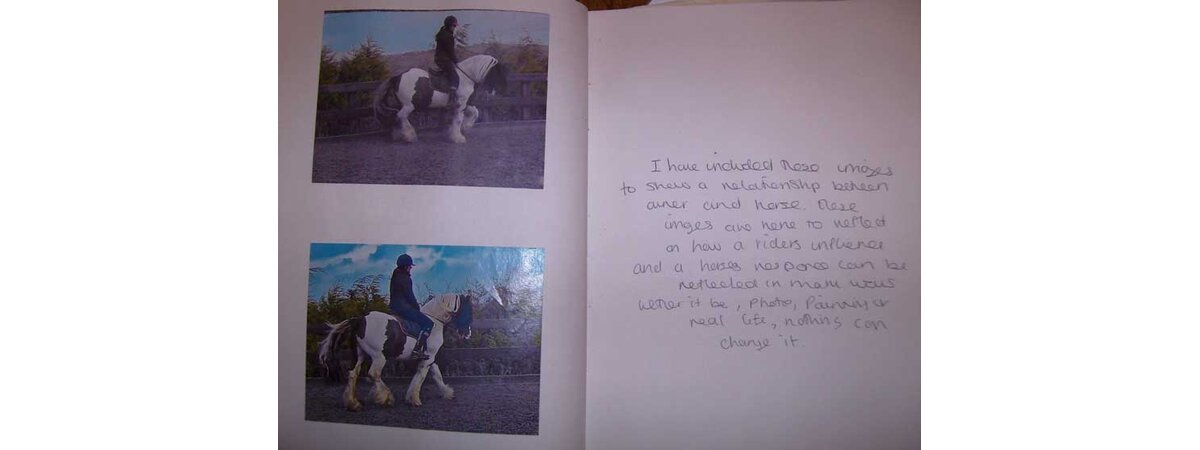 I have included these images
to show a relationship between
owner and horse. These
imges are here to reflect
on how a riders influence
and a horses responce can be
reflected in many ways
wether it be, photos, Painting or
real life, nothing can
change it.